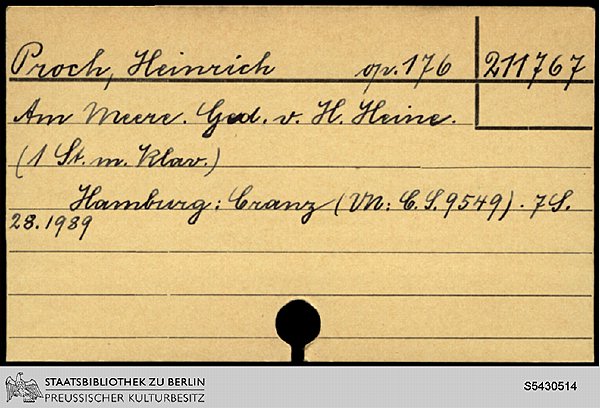 Proch, Heinrich op. 176 211767
Am Meere. Ged. v. H. Heine.
(1 St. m. Klav.)
Hamburg: Cranz (VN: C. S. 9549). 7 S.
28.1989
STAATSBIBLIOTHEK ZU BERLIN
PREUSSISCHER KULTURBESITZ
S5430514